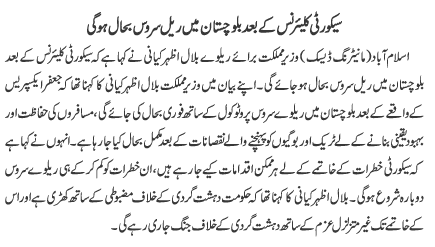 سیکورٹی کلیئرنس کے بعد بلوچستان میں ریل سروس بحال ہوگی
اسلام آباد (مانیٹرنگ ڈیسک) وزیر مملکت برائے ریلوے بلال اظہر کیانی نے کہا ہے کہ سیکورٹی کلیئرنس کے بعد
بلوچستان میں ریل سروس بحال ہو جائے گی۔ اپنے بیان میں وزیر مملکت بلال اظہر کیانی کا کہنا تھا کہ جعفر ایکسپریس
کے واقعے کے بعد بلوچستان میں ریلوے سروس پروٹوکول کے ساتھ فوری بحال کی جائے گی، مسافروں کی حفاظت اور
بہبود یقینی بنانے کے لے ٹریک اور بوگیوں کو پہنچنے والے نقصانات کے بعد مکمل بحال کیا جا رہا ہے۔ انہوں نے کہا ہے
کہ سیکورٹی خطرات کے خاتمے کے لے ہر ممکن اقدامات کیے جا رہے ہیں، ان خطرات کو کم کر کے ہی ریلوے سروس
دوبارہ شروع ہوگی۔ بلال اظہر کیانی کا کہنا تھا کہ حکومت دہشت گردی کے خلاف مضبوطی کے ساتھ کھڑی ہے اور اس
کے خاتمے تک غیر متزلزل عزم کے ساتھ دہشت گردی کے خلاف جنگ جاری رہے گی۔